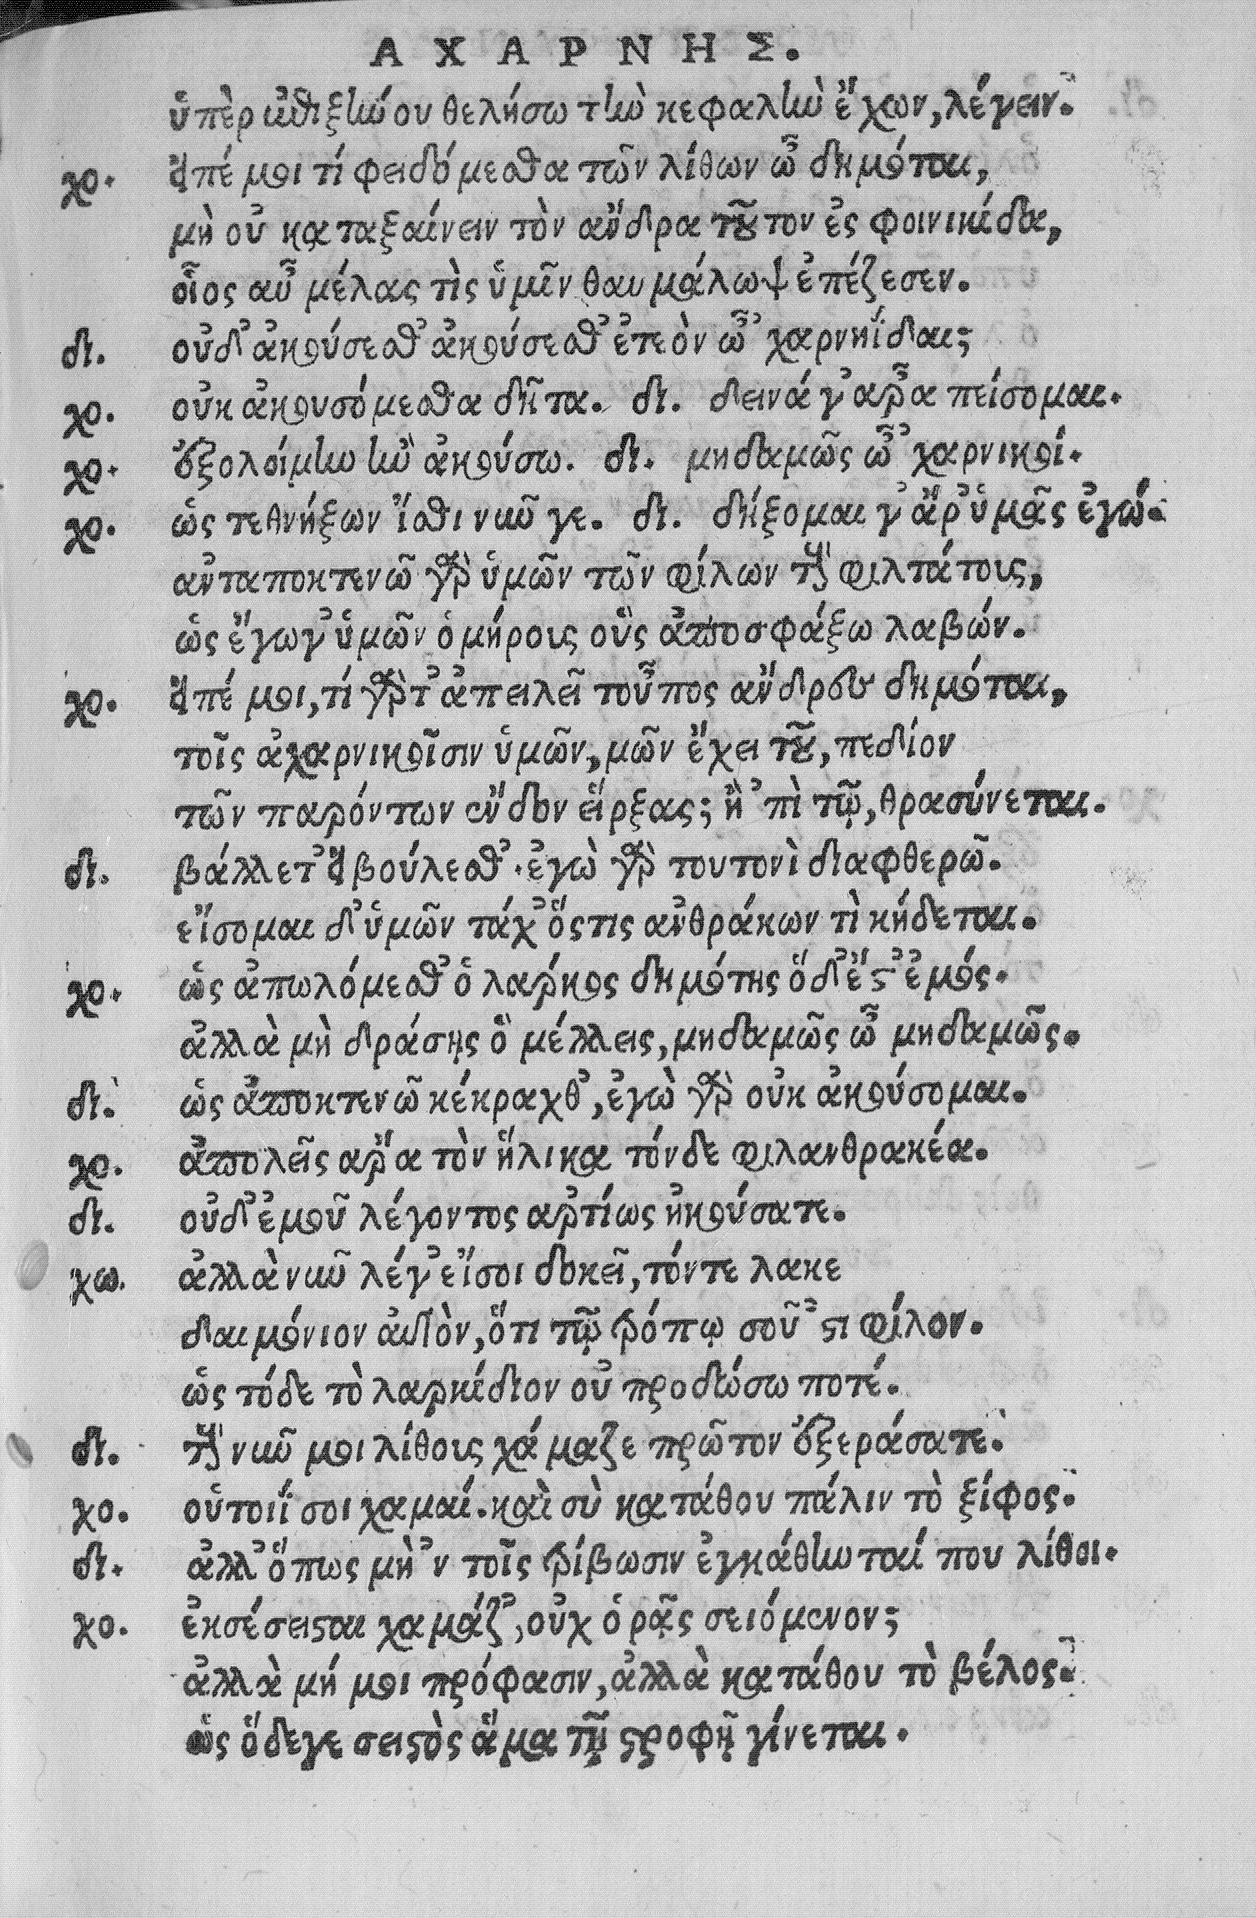 ΑΧΑΡΝΗΣ.
ὑπὲρ ἐπιξήνου θελήσω τὴν κεφαλὴν ἔχων, λέγειν.
χο. εἰπέ μοι τί φειδόμεσθα τῶν λίθων ὦ δημόται,
μὴ οὐ καταξαίνειν τὸν ἄνδρα τοῦτον ἐς φοινικίδα,
οἷος αὖ μέλας τὶς ὑμῖν θαυμάλωψ ἐπέζεσεν.
δι. οὐδ' ἀκούσεσθ' ἀκούσεσθ' ἐτεὸν ὦ 'χαρνηΐδαι;
χο. οὐκ ἀκουσόμεσθα δῆτα. δι. δεινά γ' ἆρα πείσομαι.
χο. ἐξολοίμην ἢν ἀκούσω. δι. μηδαμῶς ὦ 'χαρνικοί.
χο. ὡς τεθνήξων ἴσθι νῦν γε. δι. δήξομαι γ' ἂρ' ὑμᾶς ἐγώ.
ἀνταποκτενῶ γὰρ ὑμῶν τῶν φίλων τοὺς φιλτάτους,
ὡς ἔγωγ' ὑμῶν ὁμήρους οὓς ἀποσφάξω λαβών.
χο. εἰπέ μοι, τί γὰρ τ' ἀπειλεῖ τοὖπος ἄνδρες δημόται,
τοῖς ἀχαρνικοῖσιν ὑμῶν, μῶν ἔχει του, πεδίον
τῶν παρόντων ἔνδον εἵρξας; ἢ 'πὶ τῷ, θρασύνεται.
δι. βάλλετ' εἰ βούλεσθ'. ἐγὼ γὰρ τουτονὶ διαφθερῶ.
εἴσομαι δ' ὑμῶν τάχ' ὅστις ἀνθράκων τὶ κήδεται.
χο. ὡς ἀπωλόμεσθ' ὁ λαρκος δημότης ὅδ' ἔστ' ἐμός.
ἀλλὰ μὴ δράσῃς ὃ μέλλεις, μηδαμῶς ὦ μηδαμῶς.
δι. ὡς ἀποκτενῶ κέκραχθ', ἐγὼ γὰρ οὐκ ἀκούσομαι.
χο. ἀπολεῖς ἄρα τὸν ἥλικα τόνδε φιλανθρακέα.
δι. οὐδ' ἐμοῦ λέγοντος ἀρτίως ἠκούσατε.
χω. ἀλλὰ νῦν λέγ' εἴσοι δοκεῖ, τόντε λακε
δαιμόνιον αὐτὸν, ὅτι τῷ τρόπῳ σοῦ 'στι φίλον.
ὡς τόδε τὸ λαρκίδιον οὐ προδώσω ποτέ.
δι. τοὺς νῦν μοι λίθους χάμαζε πρῶτον ἐξεράσατε.
χο. οὑτοιΐ σοι χαμαί. καὶ σὺ κατάθου πάλιν τὸ ξίφος.
δι. ἀλλ' ὅπως μὴ 'ν τοῖς τρίβωσιν ἐγκάθηνταί που λίθοι.
χο. ἐκσέσεισται χαμάζ', οὐχ ὁρᾷς σειόμενον;
ἀλλὰ μή μοι πρόφασιν, ἀλλὰ κατάθου τὸ βέλος.
ὡς ὅδεγε σειστὸς ἅμα τῇ στροφῇ γίνεται.